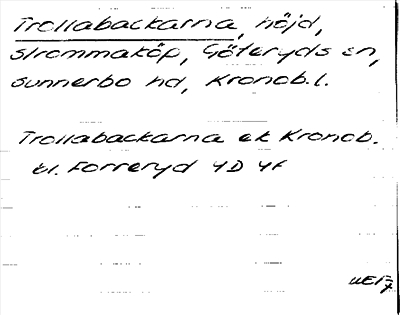 Trollabackarna, höjd,
Strommaköp, Göteryds sn,
Sunnerbo hd, Kronob.l.
Trollabackarna ek Kronob.
bl. Forreryd 4D 4f